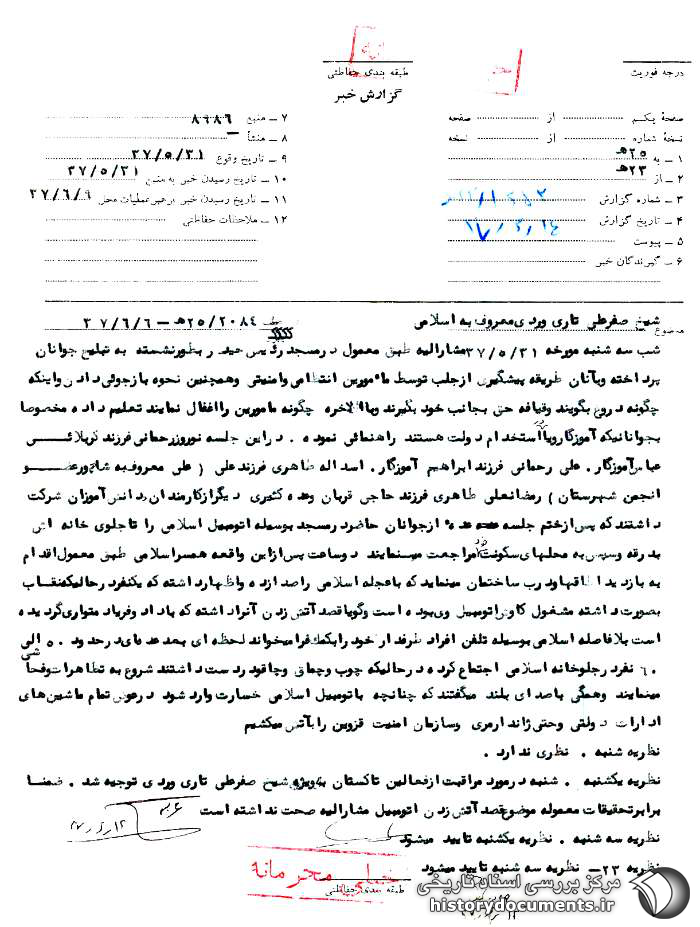 درجه فوریت
طبقه بندی حفاظتی
گزارش خبر
صفحهٔ یکم از صفحه
نسخهٔ شماره از نسخه
۱ ـ به ۲۵هـ
۲ ـ از ۲۳هـ
۳ ـ شماره گزارش
۴ ـ تاریخ گزارش
۵ ـ پیوست
۶ ـ گیرندگان خبر
۷ ـ منبع ۸۹۸۶
۸ ـ منشأ ـ
۹ ـ تاریخ وقوع ۳۷/۵/۳۱
۱۰ ـ تاریخ رسیدن خبر به منبع ۳۷/۵/۳۱
۱۱ ـ تاریخ رسیدن خبر به رهبر عملیات محل ۳۷/۶/۹
۱۲ ـ ملاحظات حفاظتی
موضوع شیخ صفرعلی تاری وردی معروف به اسلامی ۲۵/۲۰۸۴هـ – ۳۷/۶/۶
شب سه شنبه مورخه ۳۷/۵/۳۱ مشارالیه طبق معمول در مسجد رئیس حیدر بطور نشسته به تبلیغ جوانان
پرداخته و بآنان طریقه پیشگیری از جلب توسط مامورین انتظامی و امنیتی و همچنین نحوه بازجوئی دادن و اینکه
چگونه دروغ بگویند و قیافه حق بجانب خود بگیرند و بالاخره چگونه مامورین را اغفال نمایند تعلیم داده مخصوصا
بجوانانیکه آموزگار و یا در استخدام دولت هستند راهنمائی نموده . در این جلسه نوروز رحمانی فرزند کربلائی
عباس آموزگار . علی رحمانی فرزند ابراهیم آموزگار . اسداله طاهری فرزند علی ( علی معروف به شاپور عضو
انجمن شهرستان ) رمضانعلی طاهری فرزند حاجی قربان وعده کثیری دیگر از کارمندان و دانش آموزان شرکت
داشتند که پس از ختم جلسه عده از جوانان حاضر در مسجد بوسیله اتومبیل اسلامی را تا جلوی خانه اش
بدرقه و سپس به محلهای سکونت خود مراجعت مینمایند دو ساعت پس از این واقعه همسر اسلامی طبق معمول اقدام
به بازدید اطاقها و درب ساختمان مینماید که باعجله اسلامی را صدا زده و اظهار داشته که یکنفر در حالیکه نقاب
بصورت داشته مشغول کاوش اتومبیل وی بوده است و گویا قصد آتش زدن آنرا داشته که با داد و فریاد متواری گردیده
است بلافاصله اسلامی بوسیله تلفن افراد طرفدار خود را بکمک فرا میخواند لحظه ای بعد عده ای در حدود ۵۰ الی
۶۰ نفر در جلو خانه اسلامی اجتماع کرده در حالیکه چوب و چماق و چاقو در دست داشتند شروع به تظاهرات و فحاشی
مینمایند و همگی با صدای بلند میگفتند که چنانچه باتومبیل اسلامی خسارت وارد شود در عوض تمام ماشین های
ادارات دولتی و حتی ژاندارمری و سازمان امنیت قزوین را بآتش میکشیم
نظریه شنبه . نظری ندارد .
نظریه یکشنبه . شنبه در مورد مراقبت از فعالین تاکستان به ویژه شیخ صفرعلی تاری وردی توجیه شد . ضمنا
برابر تحقیقات معموله موضوع قصد آتش زدن اتومبیل مشارالیه صحت نداشته است
نظریه سه شنبه . نظریه یکشنبه تایید میشود
نظریه ۲۳ـ نظریه سه شنبه تایید میشود
خیلی محرمانه
طبقه بندی حفاظتی
مرکز بررسی اسناد تاریخی
historydocuments.ir